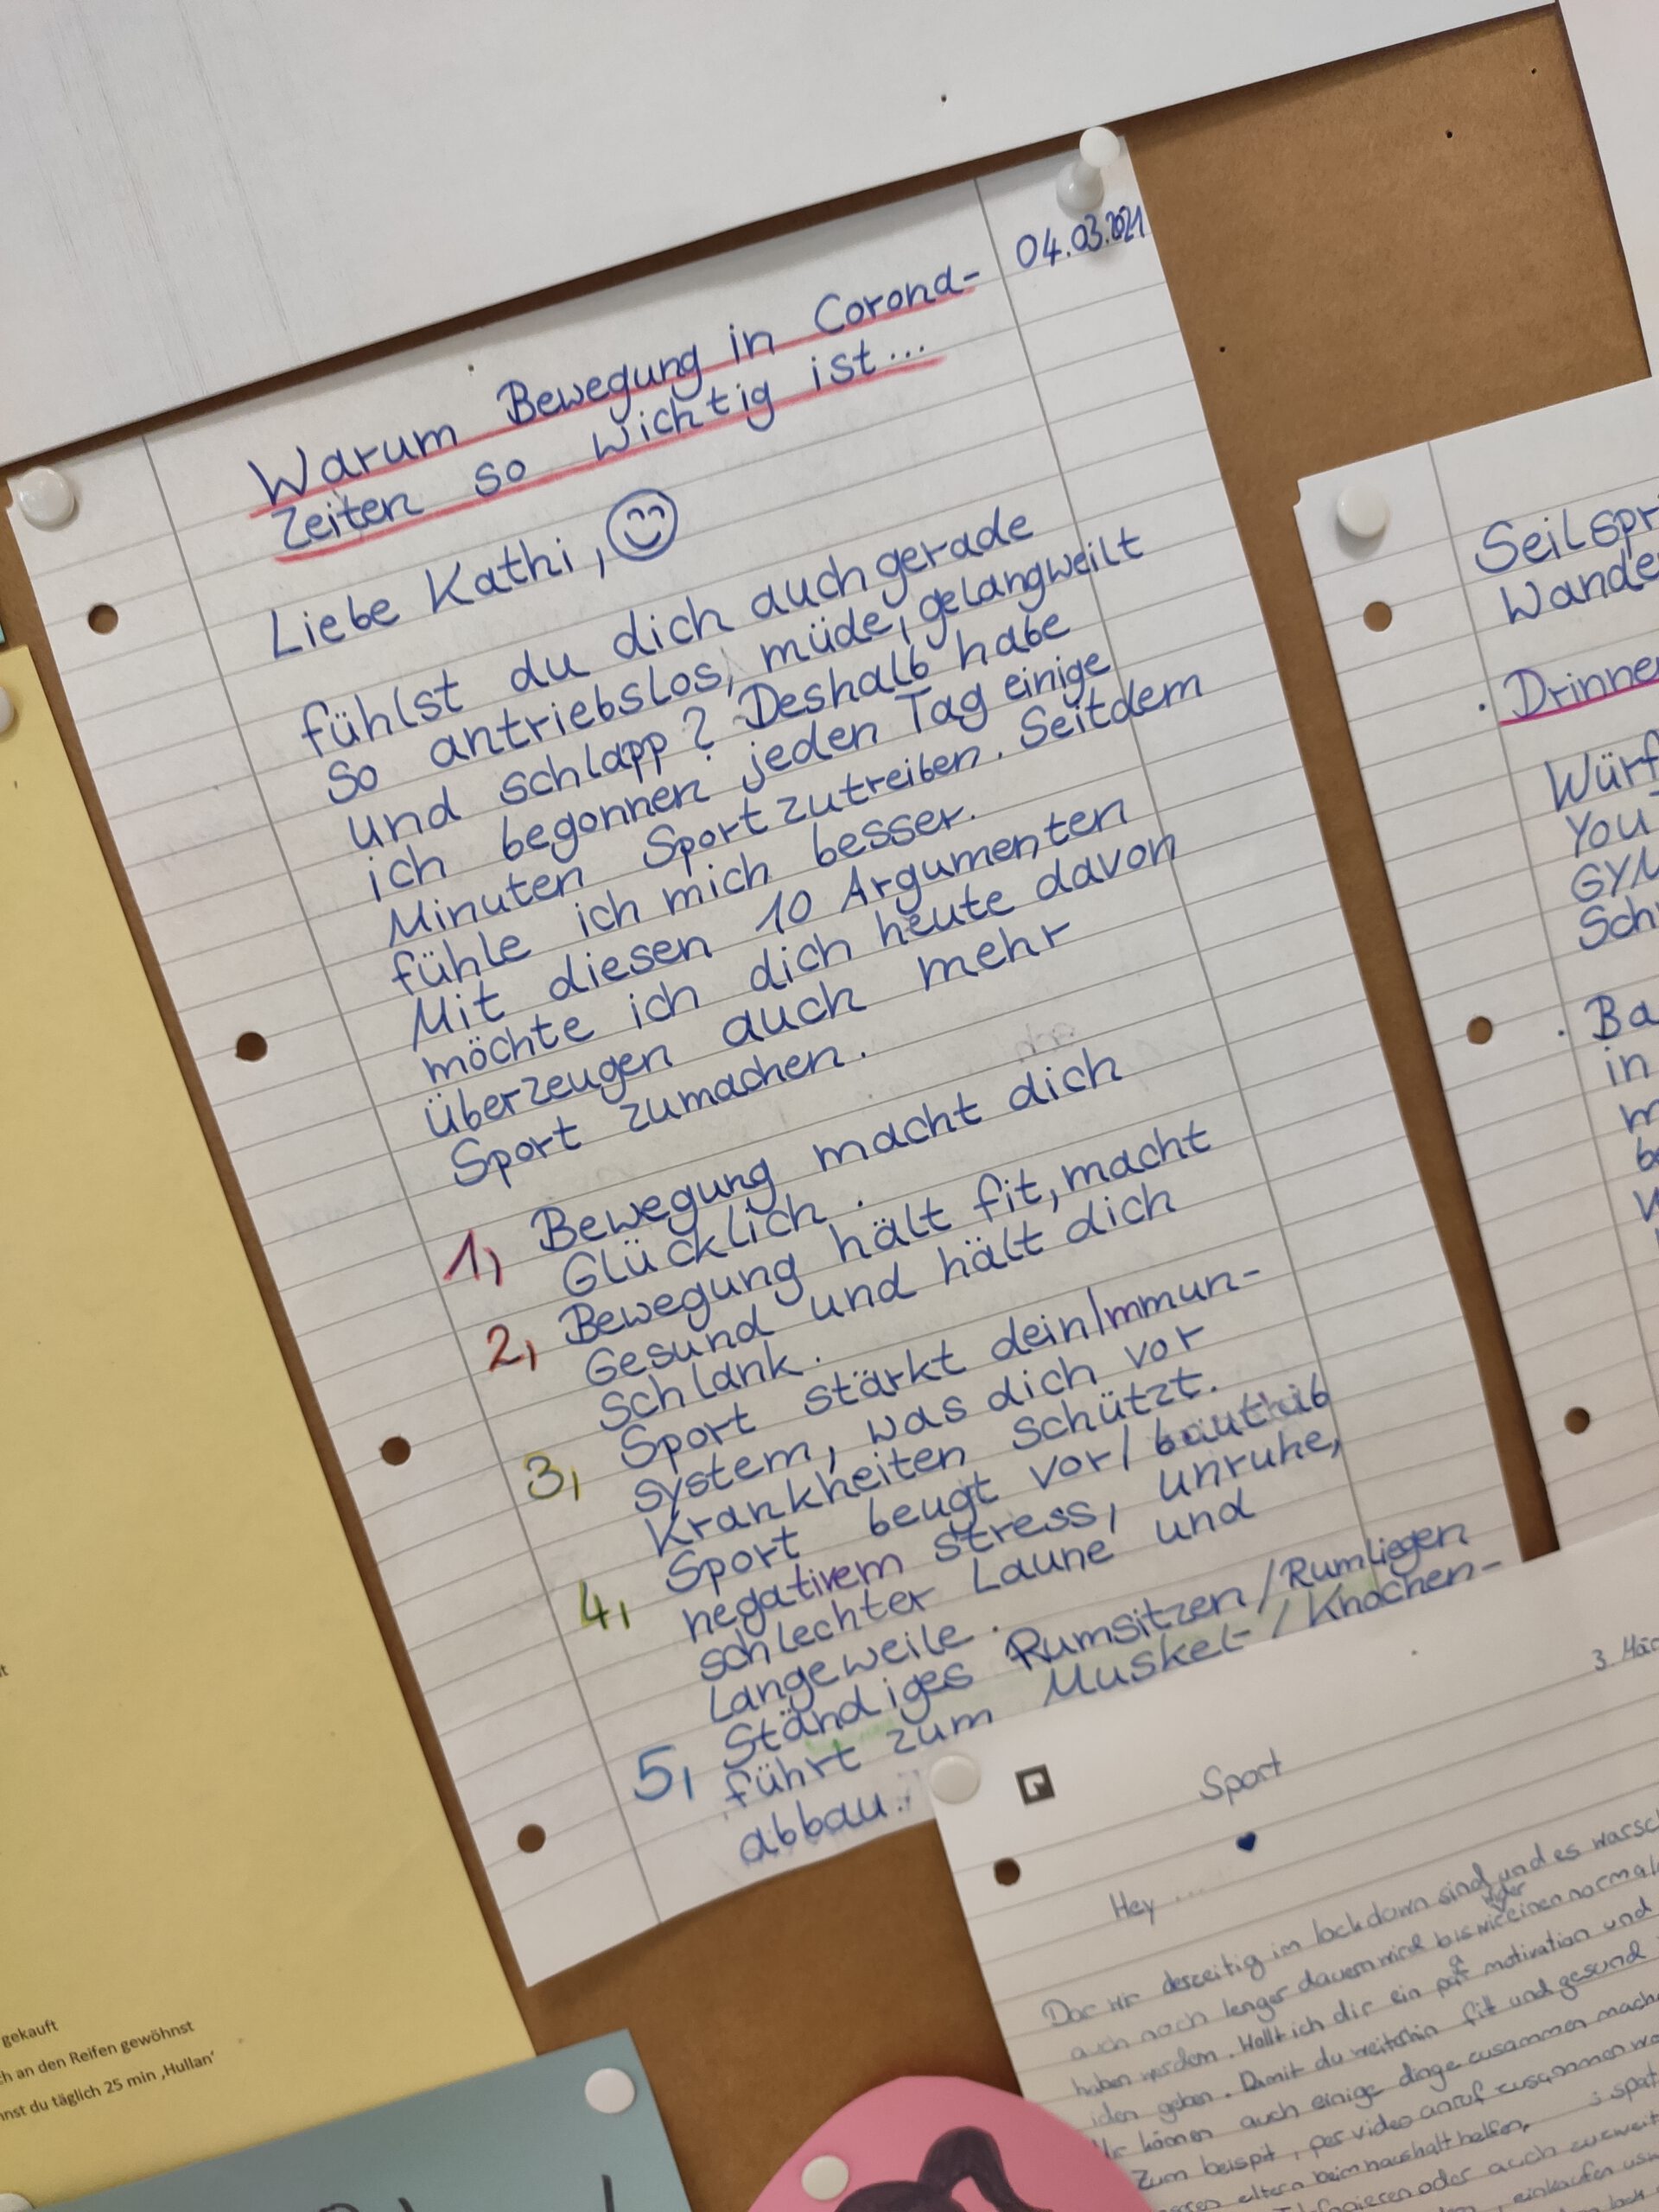 04.03.2021
Warum Bewegung in Corona-
Zeiten so wichtig ist...
Liebe Kathi,
fühlst du dich auch gerade
so antriebslos, müde, gelangweilt
und schlapp? Deshalb habe
ich begonnen jeden Tag einige
Minuten Sport zutreiben. Seitdem
fühle ich mich besser.
Mit diesen 10 Argumenten
möchte ich dich heute davon
überzeugen auch mehr
Sport zumachen.
1, Bewegung macht dich
Glücklich.
2, Bewegung hält fit, macht
Gesund und hält dich
schlank.
3, Sport stärkt dein Immun-
system, was dich vor
Krankheiten schützt.
4, Sport beugt vor/ baut ab
negativem stress, unruhe,
schlechter Laune und
Langeweile.
5, Ständiges Rumsitzen/Rumliegen
führt zum Muskel-/Knochen-
abbau.
Seilspr
Wande
· Drinne
Würf
You
GYM
Sch
· Ba
in
m
3. Mär
Sport
Hey ....
Da wir derzeitig im lockdown sind und es warsc
auch noch lenger dauern wird bis wir wieder einen normal
haben werden. Wollt ich dir ein paar motivation und
iden geben. Damit du weiterhin fit und gesund
Wir können auch einige dinge zusammen mach
Zum beispil, per video anruf zusammen
eltern beim haushalt helfen,
oder auch
einkaufen usw
gekauft
ch an den Reifen gewöhnst
nnst du täglich 25 min ‚Hullan'